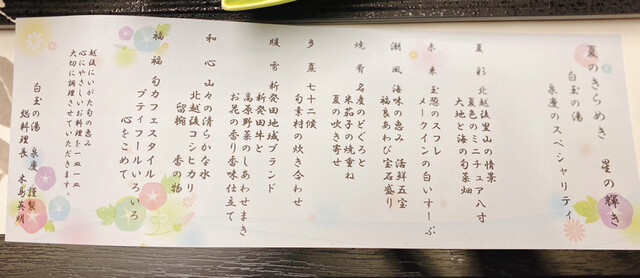 夏のきらめき 星の輝き
白玉の湯
泉慶のスペシャリティ
夏彩 北越後里山の情景
夏色のミニチュア八寸
大地と海の旬菜畑
未来 玉葱のスフレ
メークインの白いすーぷ
潮風 海味の恵み 活鮮五宝
福良あわび宝石盛り
焼肴 名産のどぐろと
米茄子の焼重ね
夏の吹き寄せ
多喜 七十二候
旬素材の炊き合わせ
暖雪 新発田地域ブランド
新発田牛と
高原野菜のしあわせまき
お花の香り香味仕立て
和心 山々の清らかな水
北越後コシヒカリ
留椀 香の物
福福 旬カフェスタイル
プティフールいろいろ
心をこめて
越後にいがた旬の恵み
心にやさしいお料理を一皿一皿
大切に調理させていただきます。
白玉の湯 泉慶 謹製
総料理長 木島英明